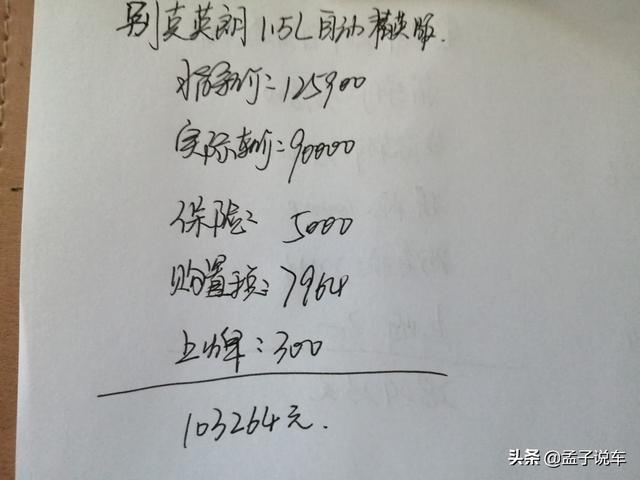 别克英朗 1.5L自动精英版.
指导价:125900
实际车价:90000
保险: 5000
购置税:7964
上牌:300
103264元.
头条 @孟子说车